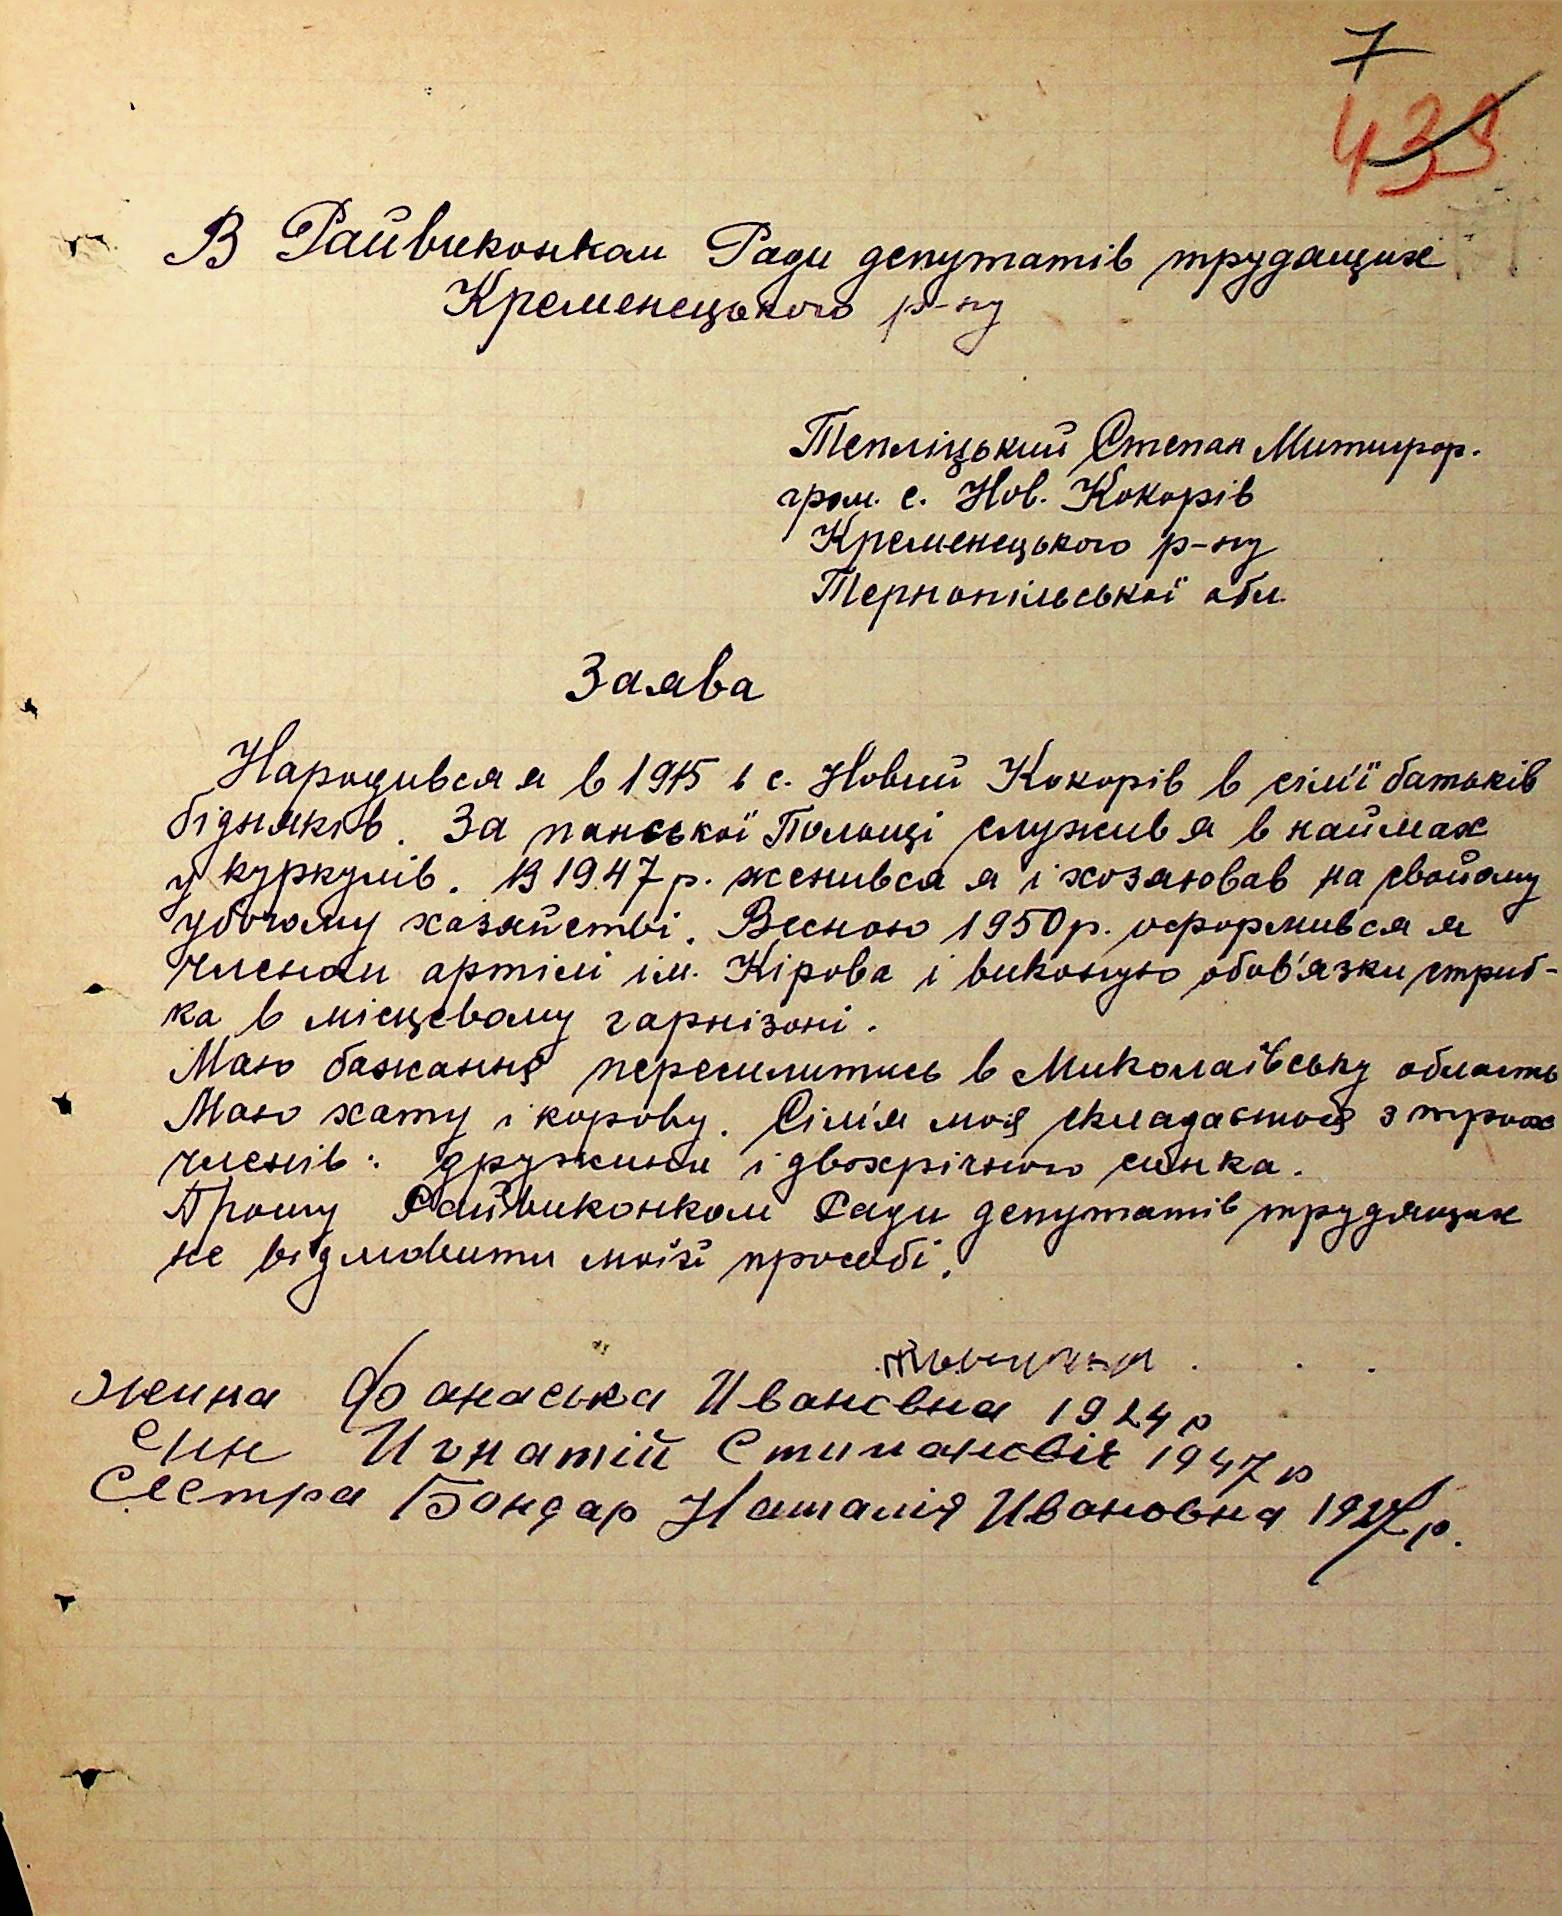 7
439
В Райвиконком Ради депутатів трудящих
Кременецького р-ну
Тепліцький Степан Митифор.
гром. с. Нов. Кокорів
Кременецького р-ну
Тернопільської обл.
Заява
Народився я в 1915 в с. Новий Кокорів в сім'ї батьків
бідняків. За панської Польщі служив я в наймах
у куркулів. В 1947 р. женився я і хозяював на свойому
убогому хазяйстві. Весною 1950 р. оформився я
членом артілі ім. Кірова і виконую обов'язки стриб-
ка в місцевому гарнізоні.
Маю бажання переселитись в Миколаївську область
Маю хату і корову. Сім'я моя складається з трьох
членів: дружини і двохрічного синка.
Прошу Райвиконком Ради депутатів трудящих
не відмовити моїй просьбі.
жина Фанаська Ивановна 1924 р
Син Игнатій Стипанович 1947 р
Сестра Бондар Наталія Ивановна р.